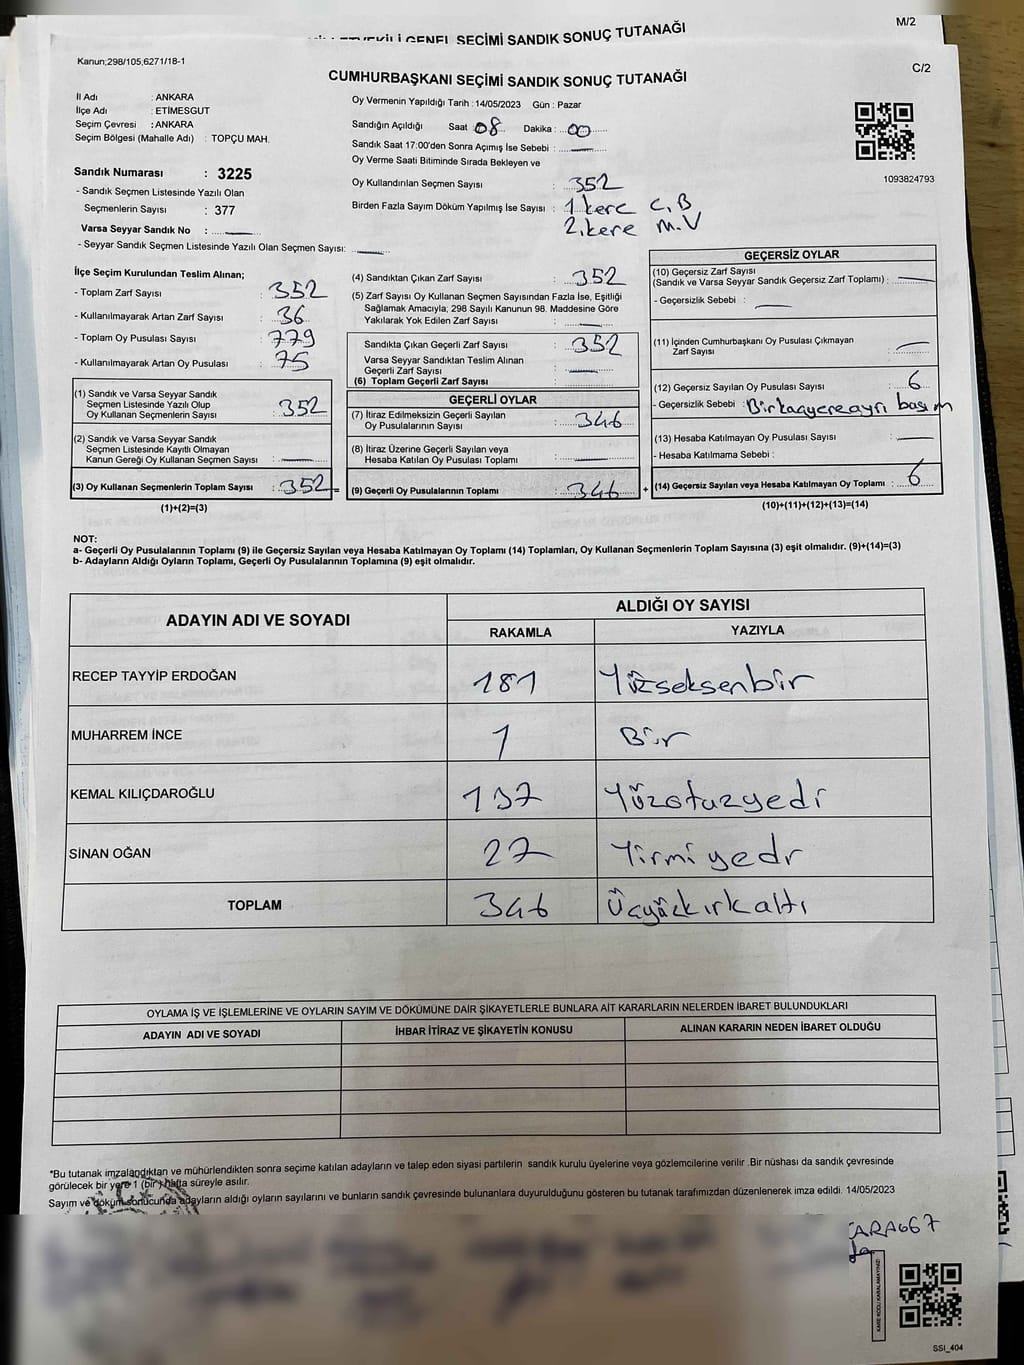 GENEL SEÇİMİ SANDIK SONUÇ TUTANAĞI
M/2
Kanun;298/105,6271/18-1
CUMHURBAŞKANI SEÇİMİ SANDIK SONUÇ TUTANAĞI
C/2
İl Adı : ANKARA
İlçe Adı : ETİMESGUT
Seçim Çevresi : ANKARA
Seçim Bölgesi (Mahalle Adı) : TOPÇU MAH.
Sandık Numarası : 3225
- Sandık Seçmen Listesinde Yazılı Olan
Seçmenlerin Sayısı : 377
Varsa Seyyar Sandık No :
- Seyyar Sandık Seçmen Listesinde Yazılı Olan Seçmen Sayısı:
Oy Vermenin Yapıldığı Tarih : 14/05/2023 Gün : Pazar
Sandığın Açıldığı Saat : 08 Dakika : 00
Sandık Saat 17:00'den Sonra Açımış İse Sebebi :
Oy Verme Saati Bitiminde Sırada Bekleyen ve
Oy Kullandırılan Seçmen Sayısı : 352
Birden Fazla Sayım Döküm Yapılmış İse Sayısı : 1 kere C.B
2. kere M.V
1093824793
İlçe Seçim Kurulundan Teslim Alınan;
- Toplam Zarf Sayısı : 352
- Kullanılmayarak Artan Zarf Sayısı : 36
- Toplam Oy Pusulası Sayısı : 779
- Kullanılmayarak Artan Oy Pusulası : 75
(1) Sandık ve Varsa Seyyar Sandık
Seçmen Listesinde Yazılı Olup
Oy Kullanan Seçmenlerin Sayısı : 352
(2) Sandık ve Varsa Seyyar Sandık
Seçmen Listesinde Kayıtlı Olmayan
Kanun Gereği Oy Kullanan Seçmen Sayısı :
(3) Oy Kullanan Seçmenlerin Toplam Sayısı : 352 =
(1)+(2)=(3)
(4) Sandıktan Çıkan Zarf Sayısı : 352
(5) Zarf Sayısı Oy Kullanan Seçmen Sayısından Fazla İse, Eşitliği
Sağlamak Amacıyla; 298 Sayılı Kanunun 98. Maddesine Göre
Yakılarak Yok Edilen Zarf Sayısı :
Sandıkta Çıkan Geçerli Zarf Sayısı : 352
Varsa Seyyar Sandıktan Teslim Alınan
Geçerli Zarf Sayısı :
(6) Toplam Geçerli Zarf Sayısı :
GEÇERLİ OYLAR
(7) İtiraz Edilmeksizin Geçerli Sayılan
Oy Pusulalarının Sayısı : 346
(8) İtiraz Üzerine Geçerli Sayılan veya
Hesaba Katılan Oy Pusulası Toplamı :
(9) Geçerli Oy Pusulalarının Toplamı : 346 +
GEÇERSİZ OYLAR
(10) Geçersiz Zarf Sayısı
(Sandık ve Varsa Seyyar Sandık Geçersiz Zarf Toplamı) :
- Geçersizlik Sebebi :
(11) İçinden Cumhurbaşkanı Oy Pusulası Çıkmayan
Zarf Sayısı :
(12) Geçersiz Sayılan Oy Pusulası Sayısı : 6
- Geçersizlik Sebebi : Birkaçyere ayrı basım
(13) Hesaba Katılmayan Oy Pusulası Sayısı :
- Hesaba Katılmama Sebebi :
(14) Geçersiz Sayılan veya Hesaba Katılmayan Oy Toplamı : 6
(10)+(11)+(12)+(13)=(14)
NOT:
a- Geçerli Oy Pusulalarının Toplamı (9) ile Geçersiz Sayılan veya Hesaba Katılmayan Oy Toplamı (14) Toplamları, Oy Kullanan Seçmenlerin Toplam Sayısına (3) eşit olmalıdır. (9)+(14)=(3)
b- Adayların Aldığı Oyların Toplamı, Geçerli Oy Pusulalarının Toplamına (9) eşit olmalıdır.
ADAYIN ADI VE SOYADI
ALDIĞI OY SAYISI
RAKAMLA YAZIYLA
RECEP TAYYİP ERDOĞAN 181 Yüzseksenbir
MUHARREM İNCE 1 Bir
KEMAL KILIÇDAROĞLU 137 Yüzotuzyedi
SİNAN OĞAN 27 Yirmiyedi
TOPLAM 346 Üçyüzkırkaltı
OYLAMA İŞ VE İŞLEMLERİNE VE OYLARIN SAYIM VE DÖKÜMÜNE DAİR ŞİKAYETLERLE BUNLARA AİT KARARLARIN NELERDEN İBARET BULUNDUKLARI
ADAYIN ADI VE SOYADI İHBAR İTİRAZ VE ŞİKAYETİN KONUSU ALINAN KARARIN NEDEN İBARET OLDUĞU
*Bu tutanak imzalandıktan ve mühürlendikten sonra seçime katılan adayların ve talep eden siyasi partilerin sandık kurulu üyelerine veya gözlemcilerine verilir .Bir nüshası da sandık çevresinde
görülecek bir yere 1 (bir) hafta süreyle asılır.
Sayım ve döküm sonucunda adayların aldığı oyların sayılarını ve bunların sandık çevresinde bulunanlara duyurulduğunu gösteren bu tutanak tarafımızdan düzenlenerek imza edildi. 14/05/2023
KARE KODU KARALAMAYINIZ!
SSI_404